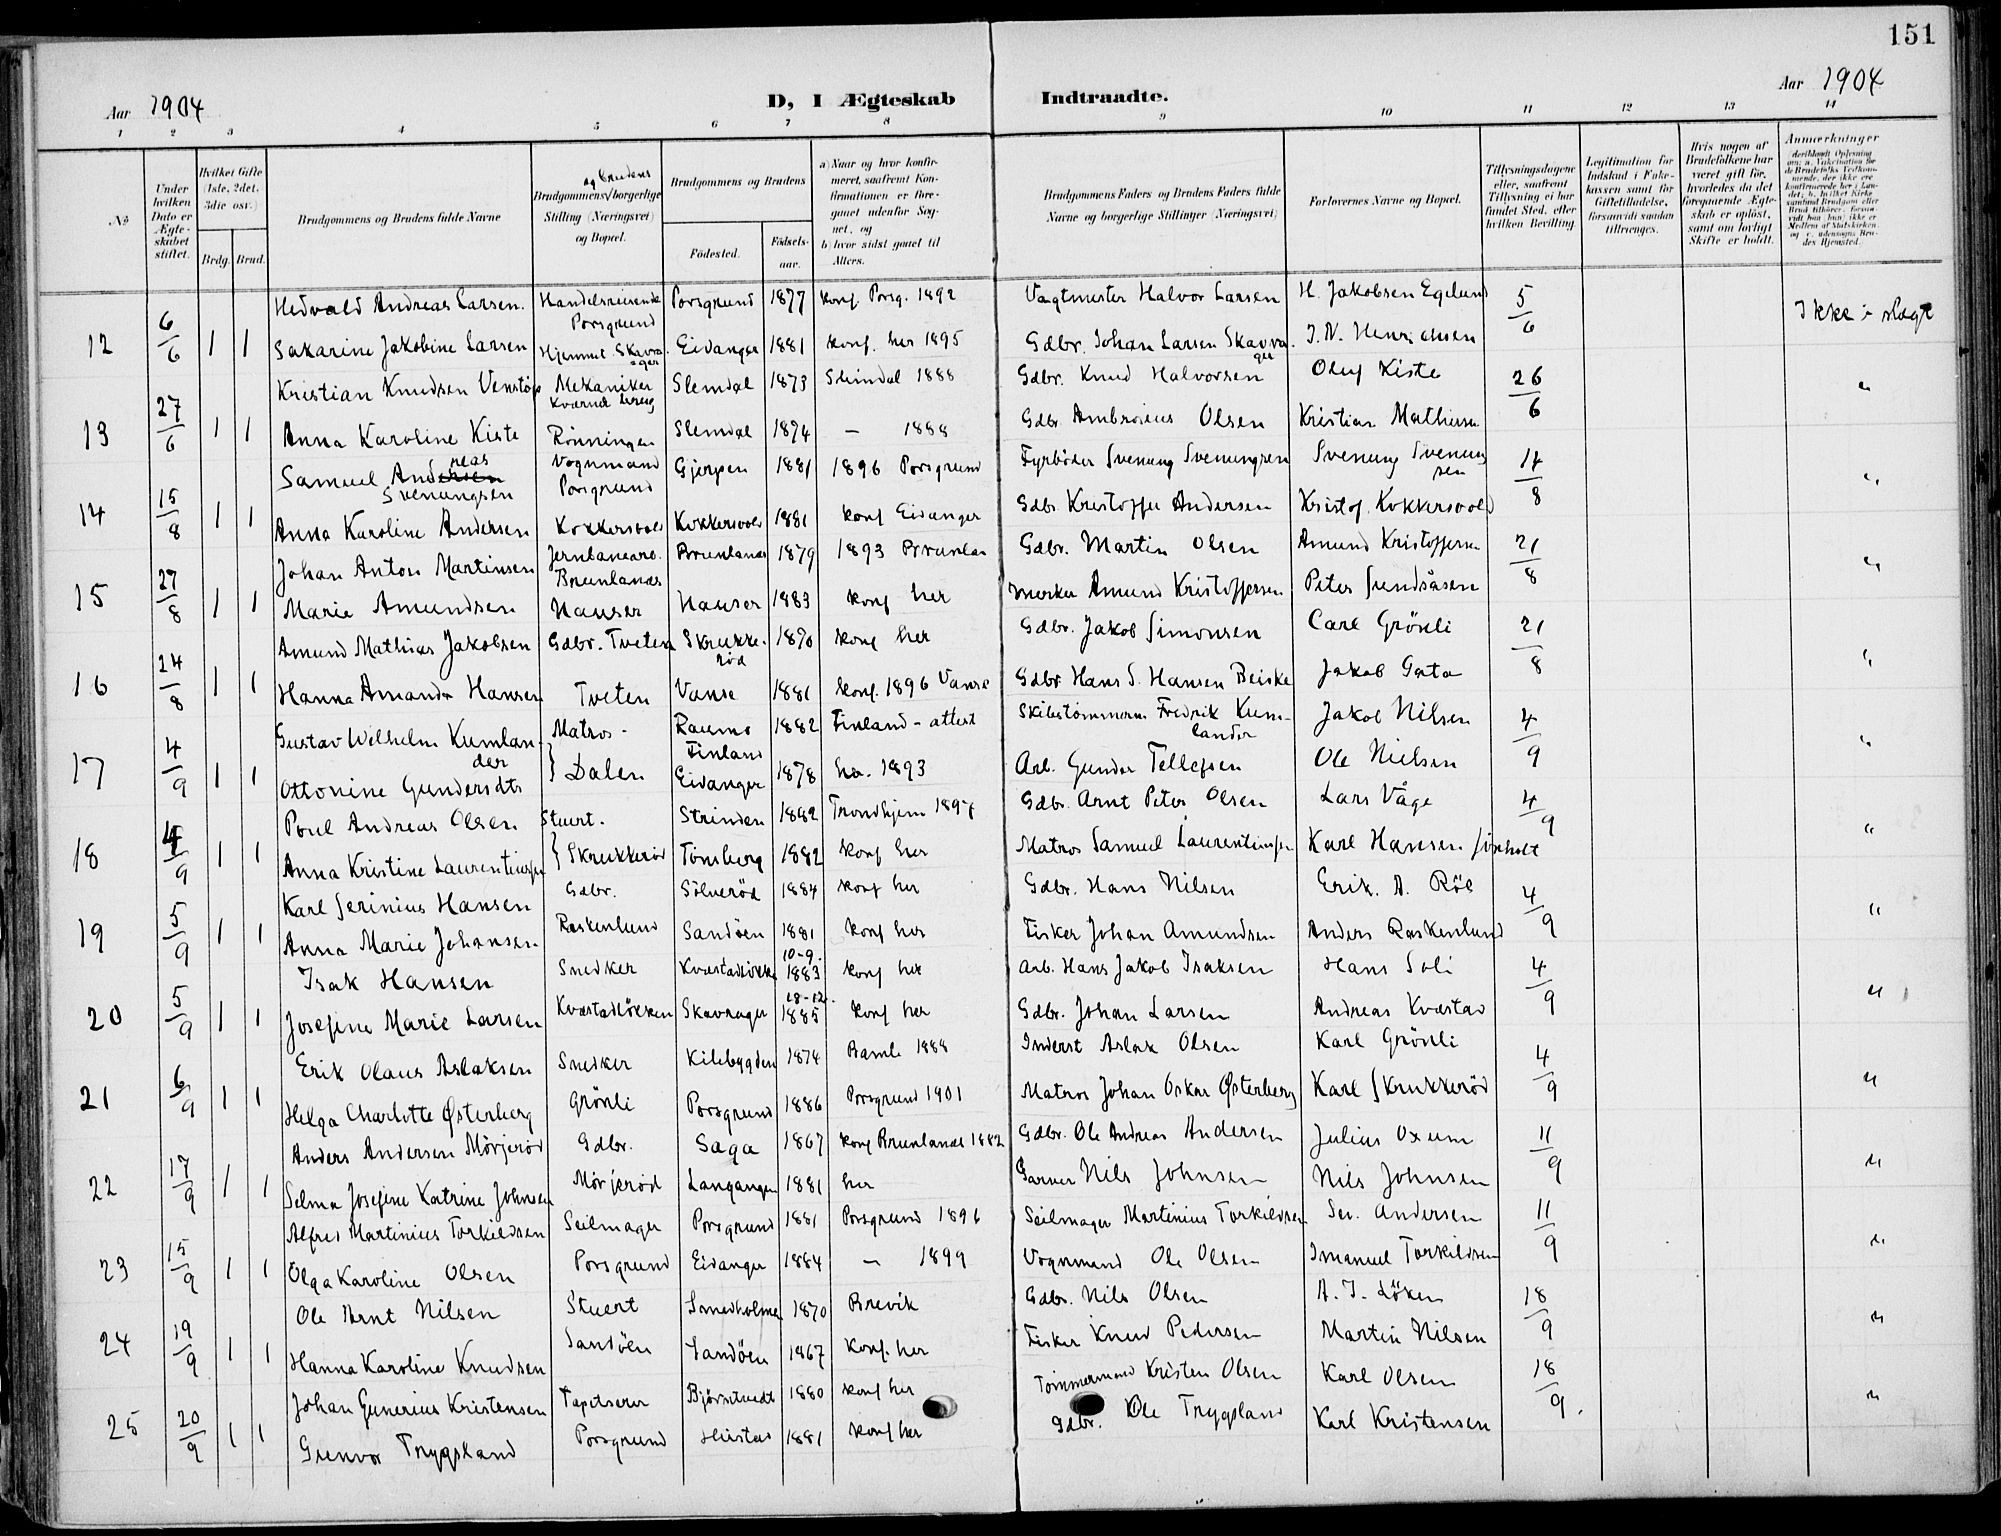 151
Aar 1904
D, I Ægteskab Indtraadte.
Aar 1904
1 2 3 4 5 6 7 8 9 10 11 12 13 14
No
Under hvilken Dato er Ægteskabet stiftet.
Hvilket Gifte (1ste, 2det, 3die osv.)
Brdg. Brud.
Brudgommens og Brudens fulde Navne
Brudgommens og Brudens borgerlige Stilling (Næringsvei) og Bopæl.
Brudgommens og Brudens
Fødested. Fødselsaar.
a) Naar og hvor konfirmeret, saafremt Konfirmationen er foregaaet udenfor Sognet, og
b) hvor sidst gaaet til Alters.
Brudgommens Faders og Brudens Faders fulde Navne og borgerlige Stillinger (Næringsvei)
Forlovernes Navne og Bopæl.
Tillysningsdagene eller, saafremt Tillysning ei har fundet Sted, efter hvilken Bevilling.
Legitimation for Indskud i Enkekassen samt for Giftetilladelse, forsaavidt saadan tiltrænges.
Hvis nogen af Brudefolkene har været gift før, hvorledes da det foregaaende Ægteskab er opløst, samt om lovligt Skifte er holdt.
Anmerkninger
Hedvald Andreas Larsen. Handelsreisende Porsgrund Porsgrund 1877 konf. Porsg. 1892 Vagtmester Halvor Larsen H. Jakobsen Egelund 5/6 Ikke i slægt
12 6/6 1 1 Sakarine Jakobine Larsen Hjemmet Skavrager Eidanger 1881 konf. her 1895 Gdbr. Johan Larsen Skavrager J. N. Henrichsen
Kristian Knudsen Venstøp Mekaniker Slemdal 1873 Slemdal 1888 Gdbr. Knud Halvorsen Oluf Kiste 26/6 "
13 27/6 1 1 Anna Karoline Kiste Rönningen Slemdal 1874 — 1888 Gdbr. Ambrosius Olsen Kristian Mathisen
Samuel Andreas Svenungsen Vognmand Porsgrund Gjerpen 1881 1896 Porsgrund Fyrböder Svenung Svenungsen Svenung Svenungsen 14/8 "
14 15/8 1 1 Anna Karoline Andersen Kokkersvold Kokkersvold 1881 konf Eidanger Gdbr. Kristoffer Andersen Kristof. Kokkersvold
Johan Anton Martinsen Jernbanearb. Brunlanes Brunlanes 1879 1893 Brunlan Gdbr. Martin Olsen Amund Kristoffersen 21/8 "
15 27/8 1 1 Marie Amundsen Nauser Nauser 1883 konf her Murker Amund Kristoffersen Peter Sundsåsen
Amund Mathias Jakobsen Gdbr. Tveten Skrukkeröd 1870 konf her Gdbr. Jakob Simonsen Carl Grönli 21/8 "
16 24/8 1 1 Hanna Amanda Hansen Tveten Vanse 1881 konf. 1896 Vanse Gdbr Hans S. Hansen Beiske Jakob Gata
Gustav Wilhelm Kumlander Matros - Raumo Finland 1882 Finland - attest Skibstömmerm. Fredrik Kumlander Jakob Nilsen 4/9 "
17 4/9 1 1 Ottonine Gundersdtr } Dalen Eidanger 1878 her. 1893 Arb. Gunder Tellefsen Ole Nielsen
Poul Andreas Olsen Stuert. Strinden 1882 Trondhjem 1897 Gdbr. Arnt Peter Olsen Lars Våge 4/9 "
18 4/9 1 1 Anna Kristine Laurentiusen } Skrukkeröd Tönsberg 1882 konf her Matros Samuel Laurentiusen Karl Hansen Sinholt
Karl Serinius Hansen Gdbr. Silveröd 1884 konf her Gdbr. Hans Nilsen Erik. A. Röe 4/9 "
19 5/9 1 1 Anna Marie Johansen Raskenlund Sandöen 1881 konf her Fisker Johan Amundsen Anders Raskenlund
Isak Hansen Snedker Kvæstadlökka 10-9. 1883 konf her Arb. Hans Jakob Isaksen Hans Soli 4/9 "
20 5/9 1 1 Josefine Marie Larsen Kvæstadlökken Skavrager 28-12. 1885 konf her Gdbr. Johan Larsen Andreas Kvæstad
Erik Olaus Aslaksen Snedker Kilebygden 1874 Bamle 1888 Inderst Aslak Olsen Karl Grönli 4/9 "
21 6/9 1 1 Helga Charlotte Østerberg Grönli Porsgrund 1886 Porsgrund 1901 Matros Johan Oskar Østerberg Karl Skrukkeröd
Anders Andersen Mörjeröd Gdbr. Saga 1867 konf Brunlanes 1882 Gdbr. Ole Andreas Andersen Julius Oxum 11/9 "
22 17/9 1 1 Selma Josefine Katrine Johnsen Mörjeröd Langangen 1881 her Garver Nils Johnsen Nils Johnsen
Alfred Martinius Torkildsen Seilmager Porsgrund 1881 Porsgrund 1896 Seilmager Martinius Torkildsen Sev. Andersen 11/9 "
23 15/9 1 1 Olga Karoline Olsen Porsgrund Eidanger 1884 — 1899 Vognmand Ole Olsen Imanuel Torkildsen
Ole Arnt Nilsen Stuert Smedholmen 1870 Brevik Gdbr. Nils Olsen A. J. Löken 18/9 "
24 19/9 1 1 Hanna Karoline Knudsen Sandöen Sandöen 1867 Konf. her Fisker Knud Pedersen Martin Nilsen
Johan Gunerius Kristensen Tapetserer Björntvedt 1880 konf her Tömmermand Kristen Olsen Karl Olsen 18/9. "
25 20/9 1 1 Gunvor Trygsland Porsgrund 1881 konf her Gdbr. Ole Trygsland Karl Kristensen